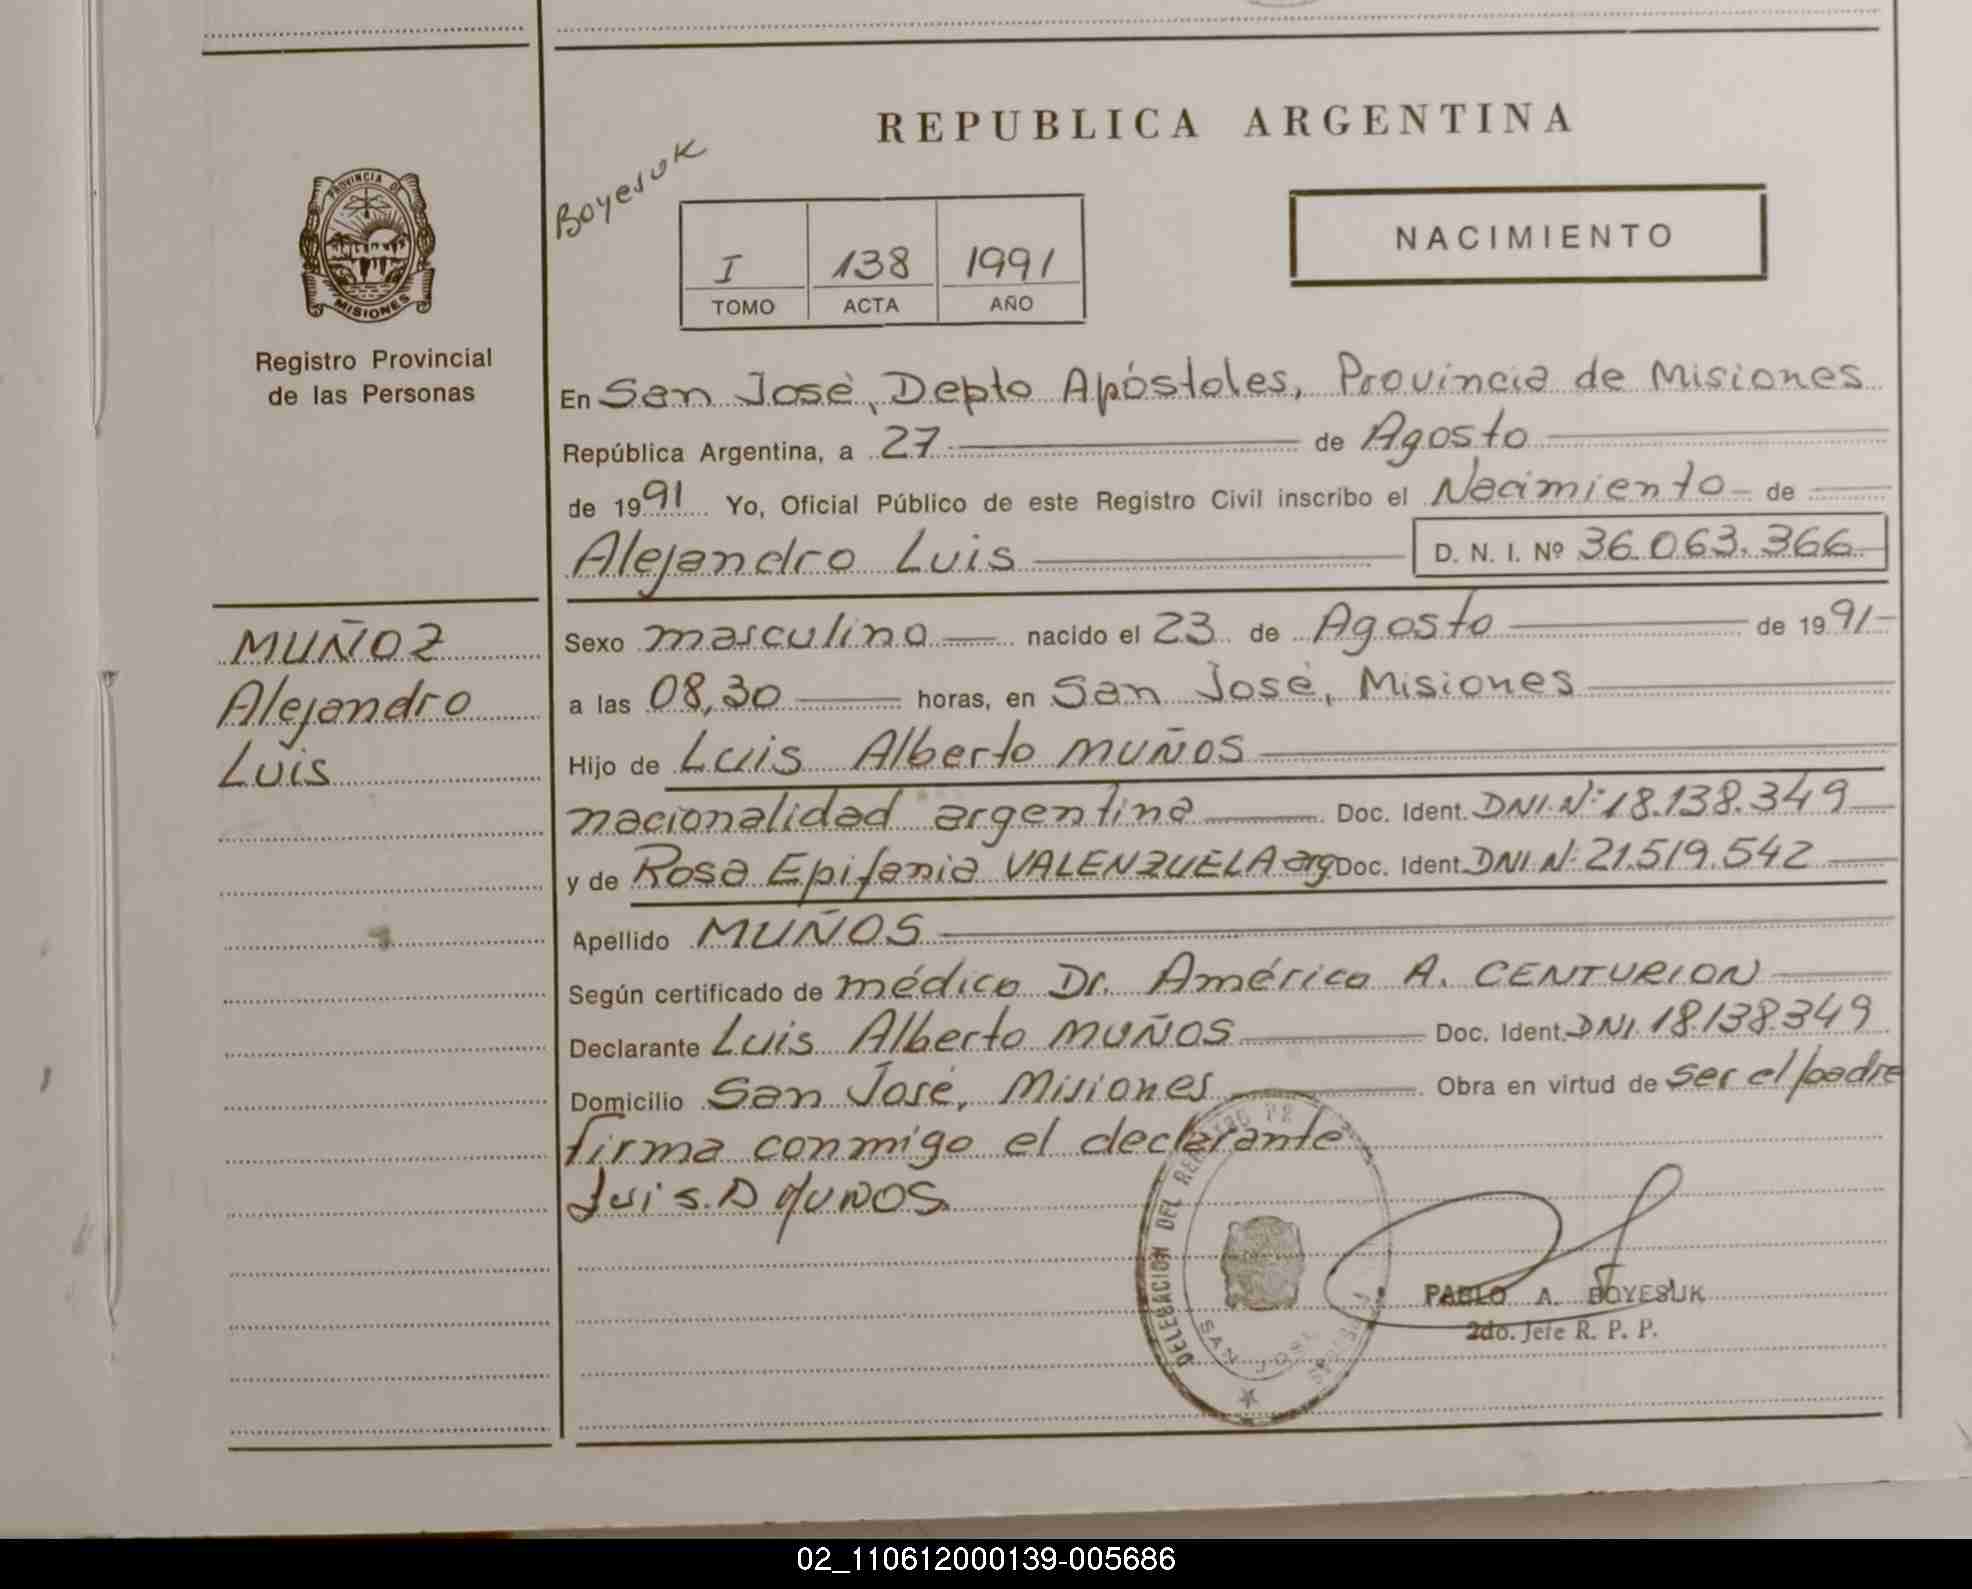 REPUBLICA ARGENTINA
Boyesuk
PROVINCIA DE
MISIONES
Registro Provincial
de las Personas
I 138 1991
TOMO ACTA AÑO
NACIMIENTO
En San José, Depto Apóstoles, Provincia de Misiones
República Argentina, a 27 de Agosto
de 1991 Yo, Oficial Público de este Registro Civil inscribo el Nacimiento de
Alejandro Luis D. N. I. Nº 36.063.366
MUÑOZ
Alejandro
Luis
Sexo masculino nacido el 23 de Agosto de 1991
a las 08,30 horas, en San José, Misiones
Hijo de Luis Alberto MUÑOS
nacionalidad argentina Doc. Ident. DNI.Nº 18.138.349
y de Rosa Epifania VALENZUELA arg Doc. Ident. DNI.Nº 21.519.542
Apellido MUÑOS
Según certificado de médico Dr. Américo A. CENTURION
Declarante Luis Alberto MUÑOS Doc. Ident. DNI. 18.138.349
Domicilio San José, Misiones Obra en virtud de ser el padre
firma conmigo el declarante
Luis. MUÑOS
DELEGACION DEL REGISTRO
SAN JOSE
PABLO A. BOYESUK
2do. Jefe R. P. P.
02_110612000139-005686